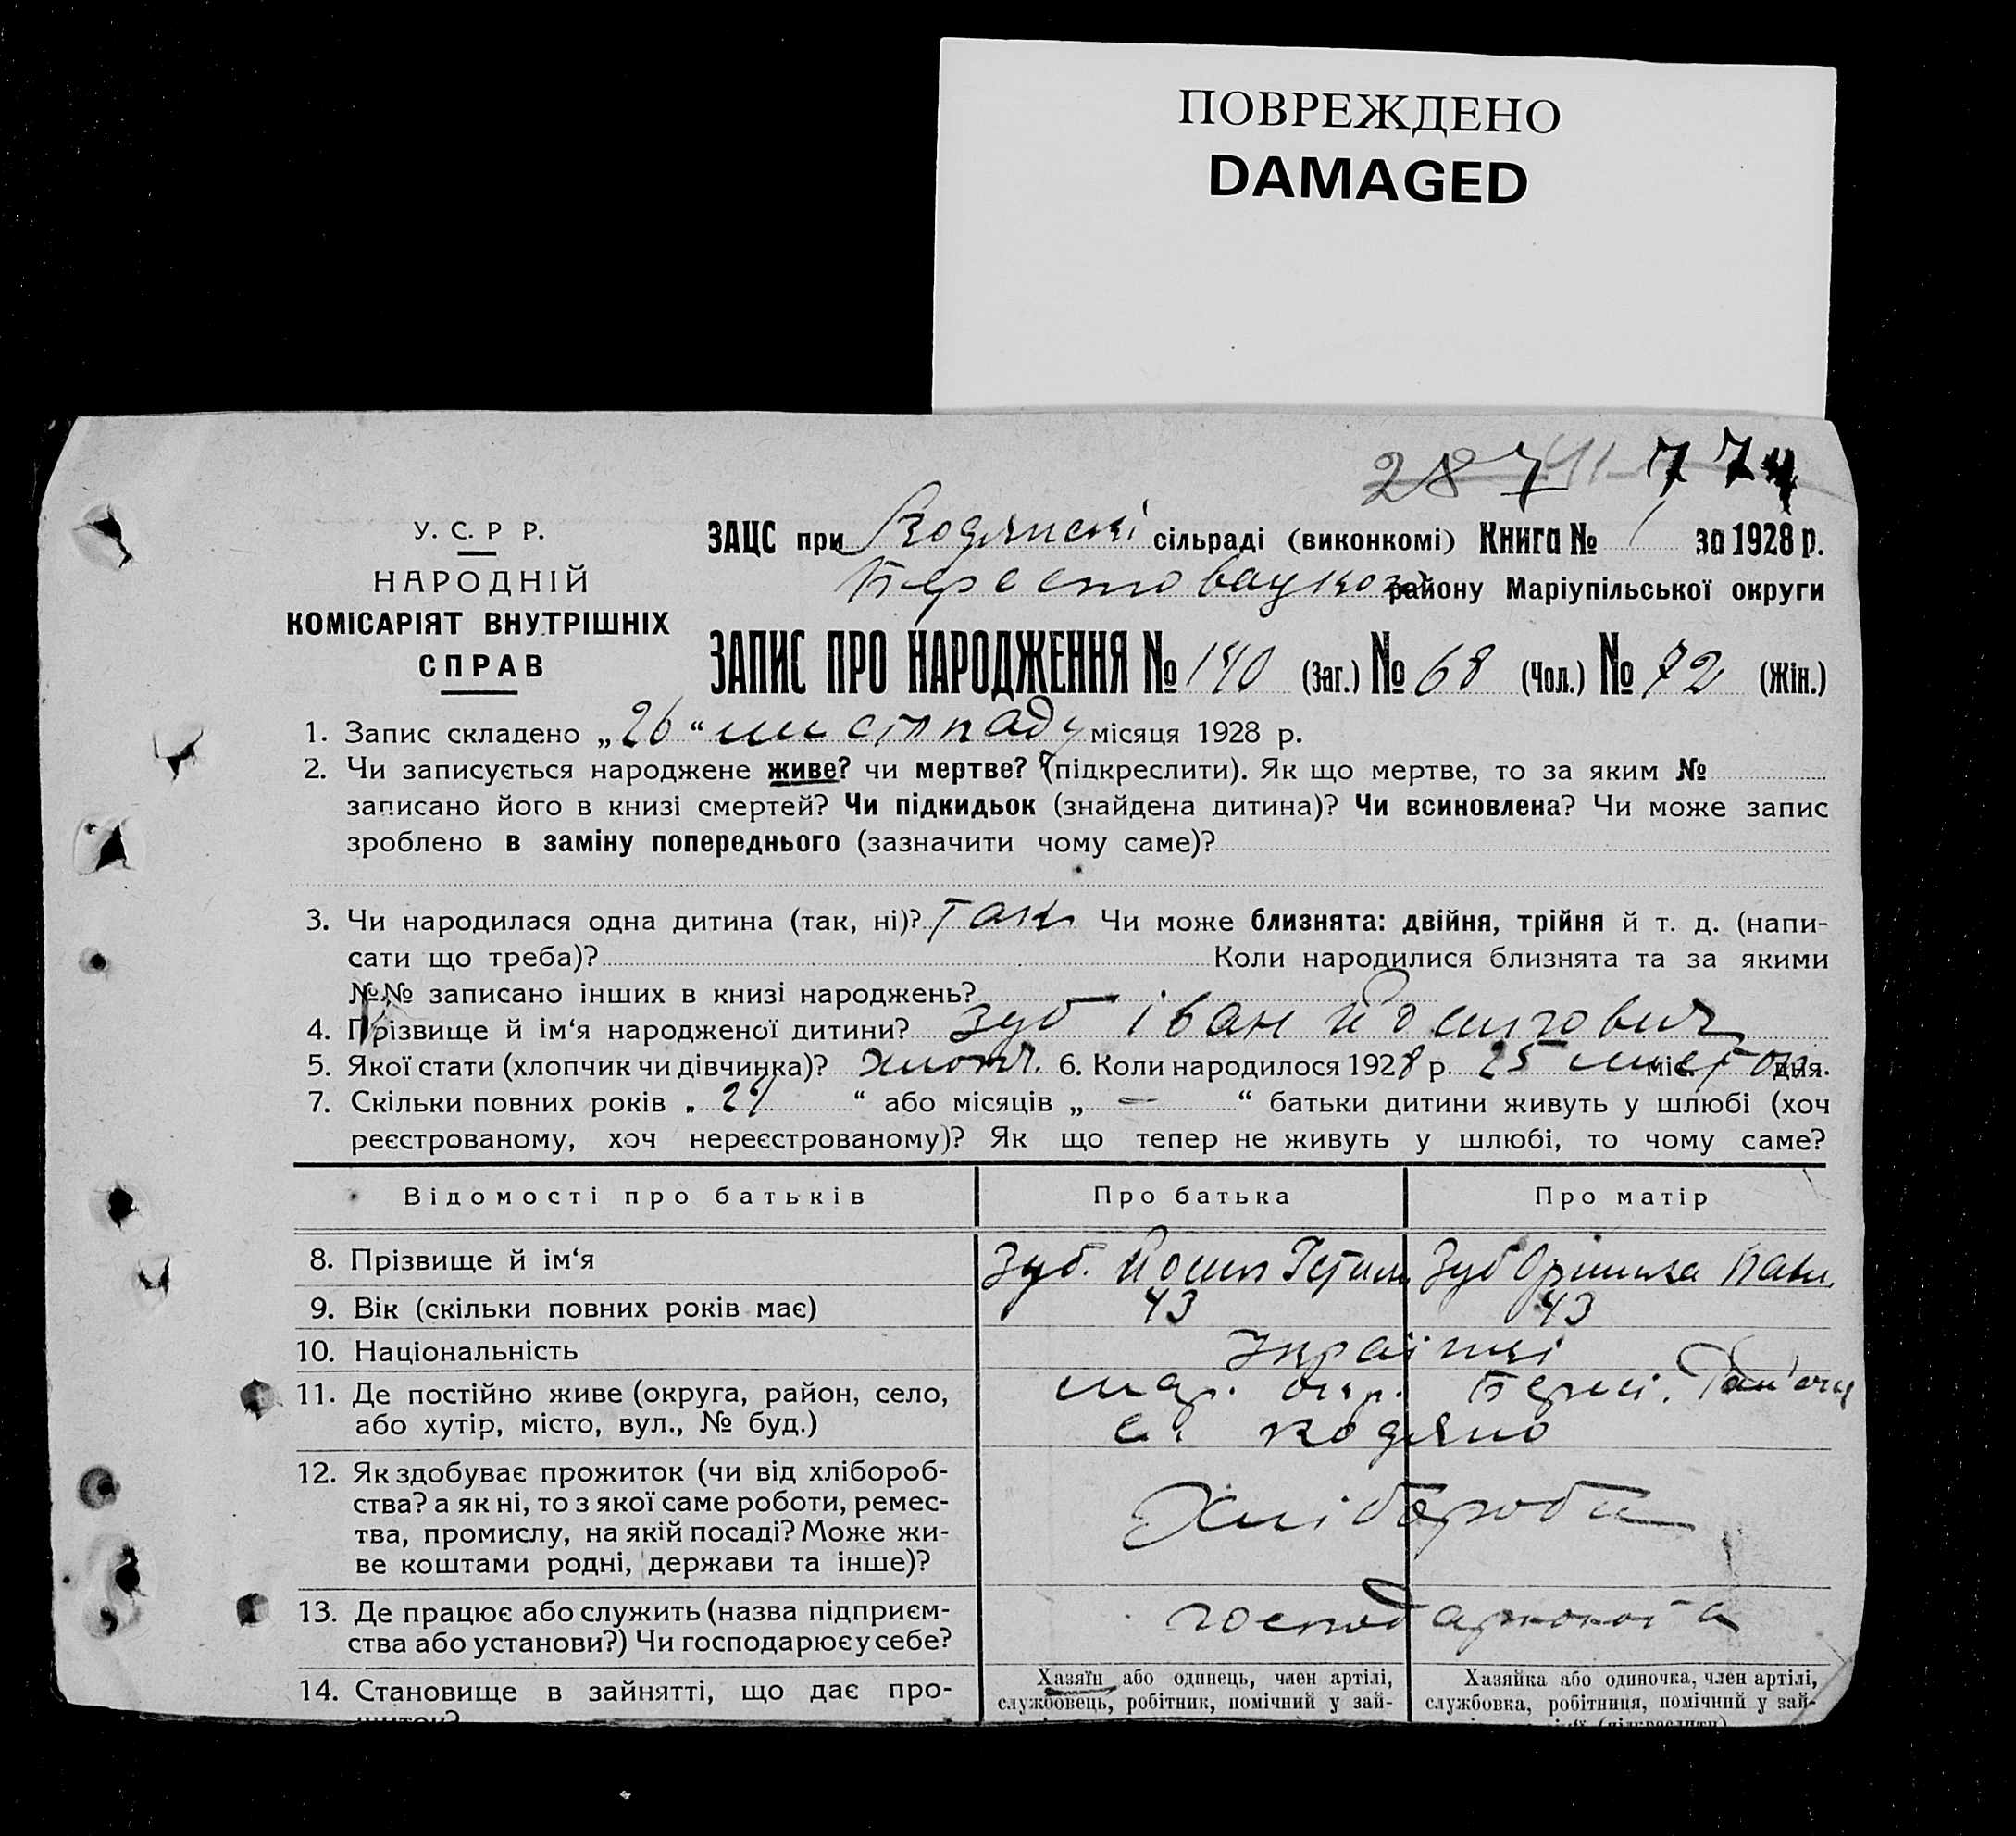 ПОВРЕЖДЕНО
DAMAGED
287 774
У. С. Р Р.
НАРОДНІЙ
КОМІСАРІЯТ ВНУТРІШНІХ
СПРАВ
ЗАЦС при Кодянскі сільраді (виконкомі) Книга № 1 за 1928 р.
району Маріупільської округи
ЗАПИС ПРО НАРОДЖЕННЯ № 140 (Заг.) № 68 (Чол.) № 72 (Жін.)
1. Запис складено „26“ листопаду місяця 1928 р.
2. Чи записується народжене живе? чи мертве? (підкреслити). Як що мертве, то за яким №
записано його в книзі смертей? Чи підкидьок (знайдена дитина)? Чи всиновлена? Чи може запис
зроблено в заміну попереднього (зазначити чому саме)?
3. Чи народилася одна дитина (так, ні)? Так Чи може близнята: двійня, трійня й т. д. (напи-
сати що треба)? Коли народилися близнята та за якими
№№ записано інших в книзі народжень?
4. Прізвище й ім‘я народженої дитини? Зуб Іван Йосипович
5. Якої стати (хлопчик чи дівчинка)? хлопч. 6. Коли народилося 1928 р. 25 лист міс. дня.
7. Скільки повних років „ “ або місяців „ — “ батьки дитини живуть у шлюбі (хоч
реєстрованому, хоч нереєстрованому)? Як що тепер не живуть у шлюбі, то чому саме?
Відомості про батьків Про батька Про матір
8. Прізвище й ім‘я Зуб. Йосип Зуб Орішка Павл.
9. Вік (скільки повних років має) 43 43
10. Національність Українці
11. Де постійно живе (округа, район, село, мар. окр.
або хутір, місто, вул., № буд.) с. Кодяно
12. Як здобуває прожиток (чи від хлібороб-
ства? а як ні, то з якої саме роботи, ремес- Хлібороби
тва, промислу, на якій посаді? Може жи-
ве коштами родні, держави та інше)?
13. Де працює або служить (назва підприєм-
ства або установи?) Чи господарює у себе?
14. Становище в зайнятті, що дає про- Хазяїн або одинець, член артілі, Хазяйка або одиночка, член артілі,
службовець, робітник, помічний у зай- службовка, робітниця, помічний у зай-